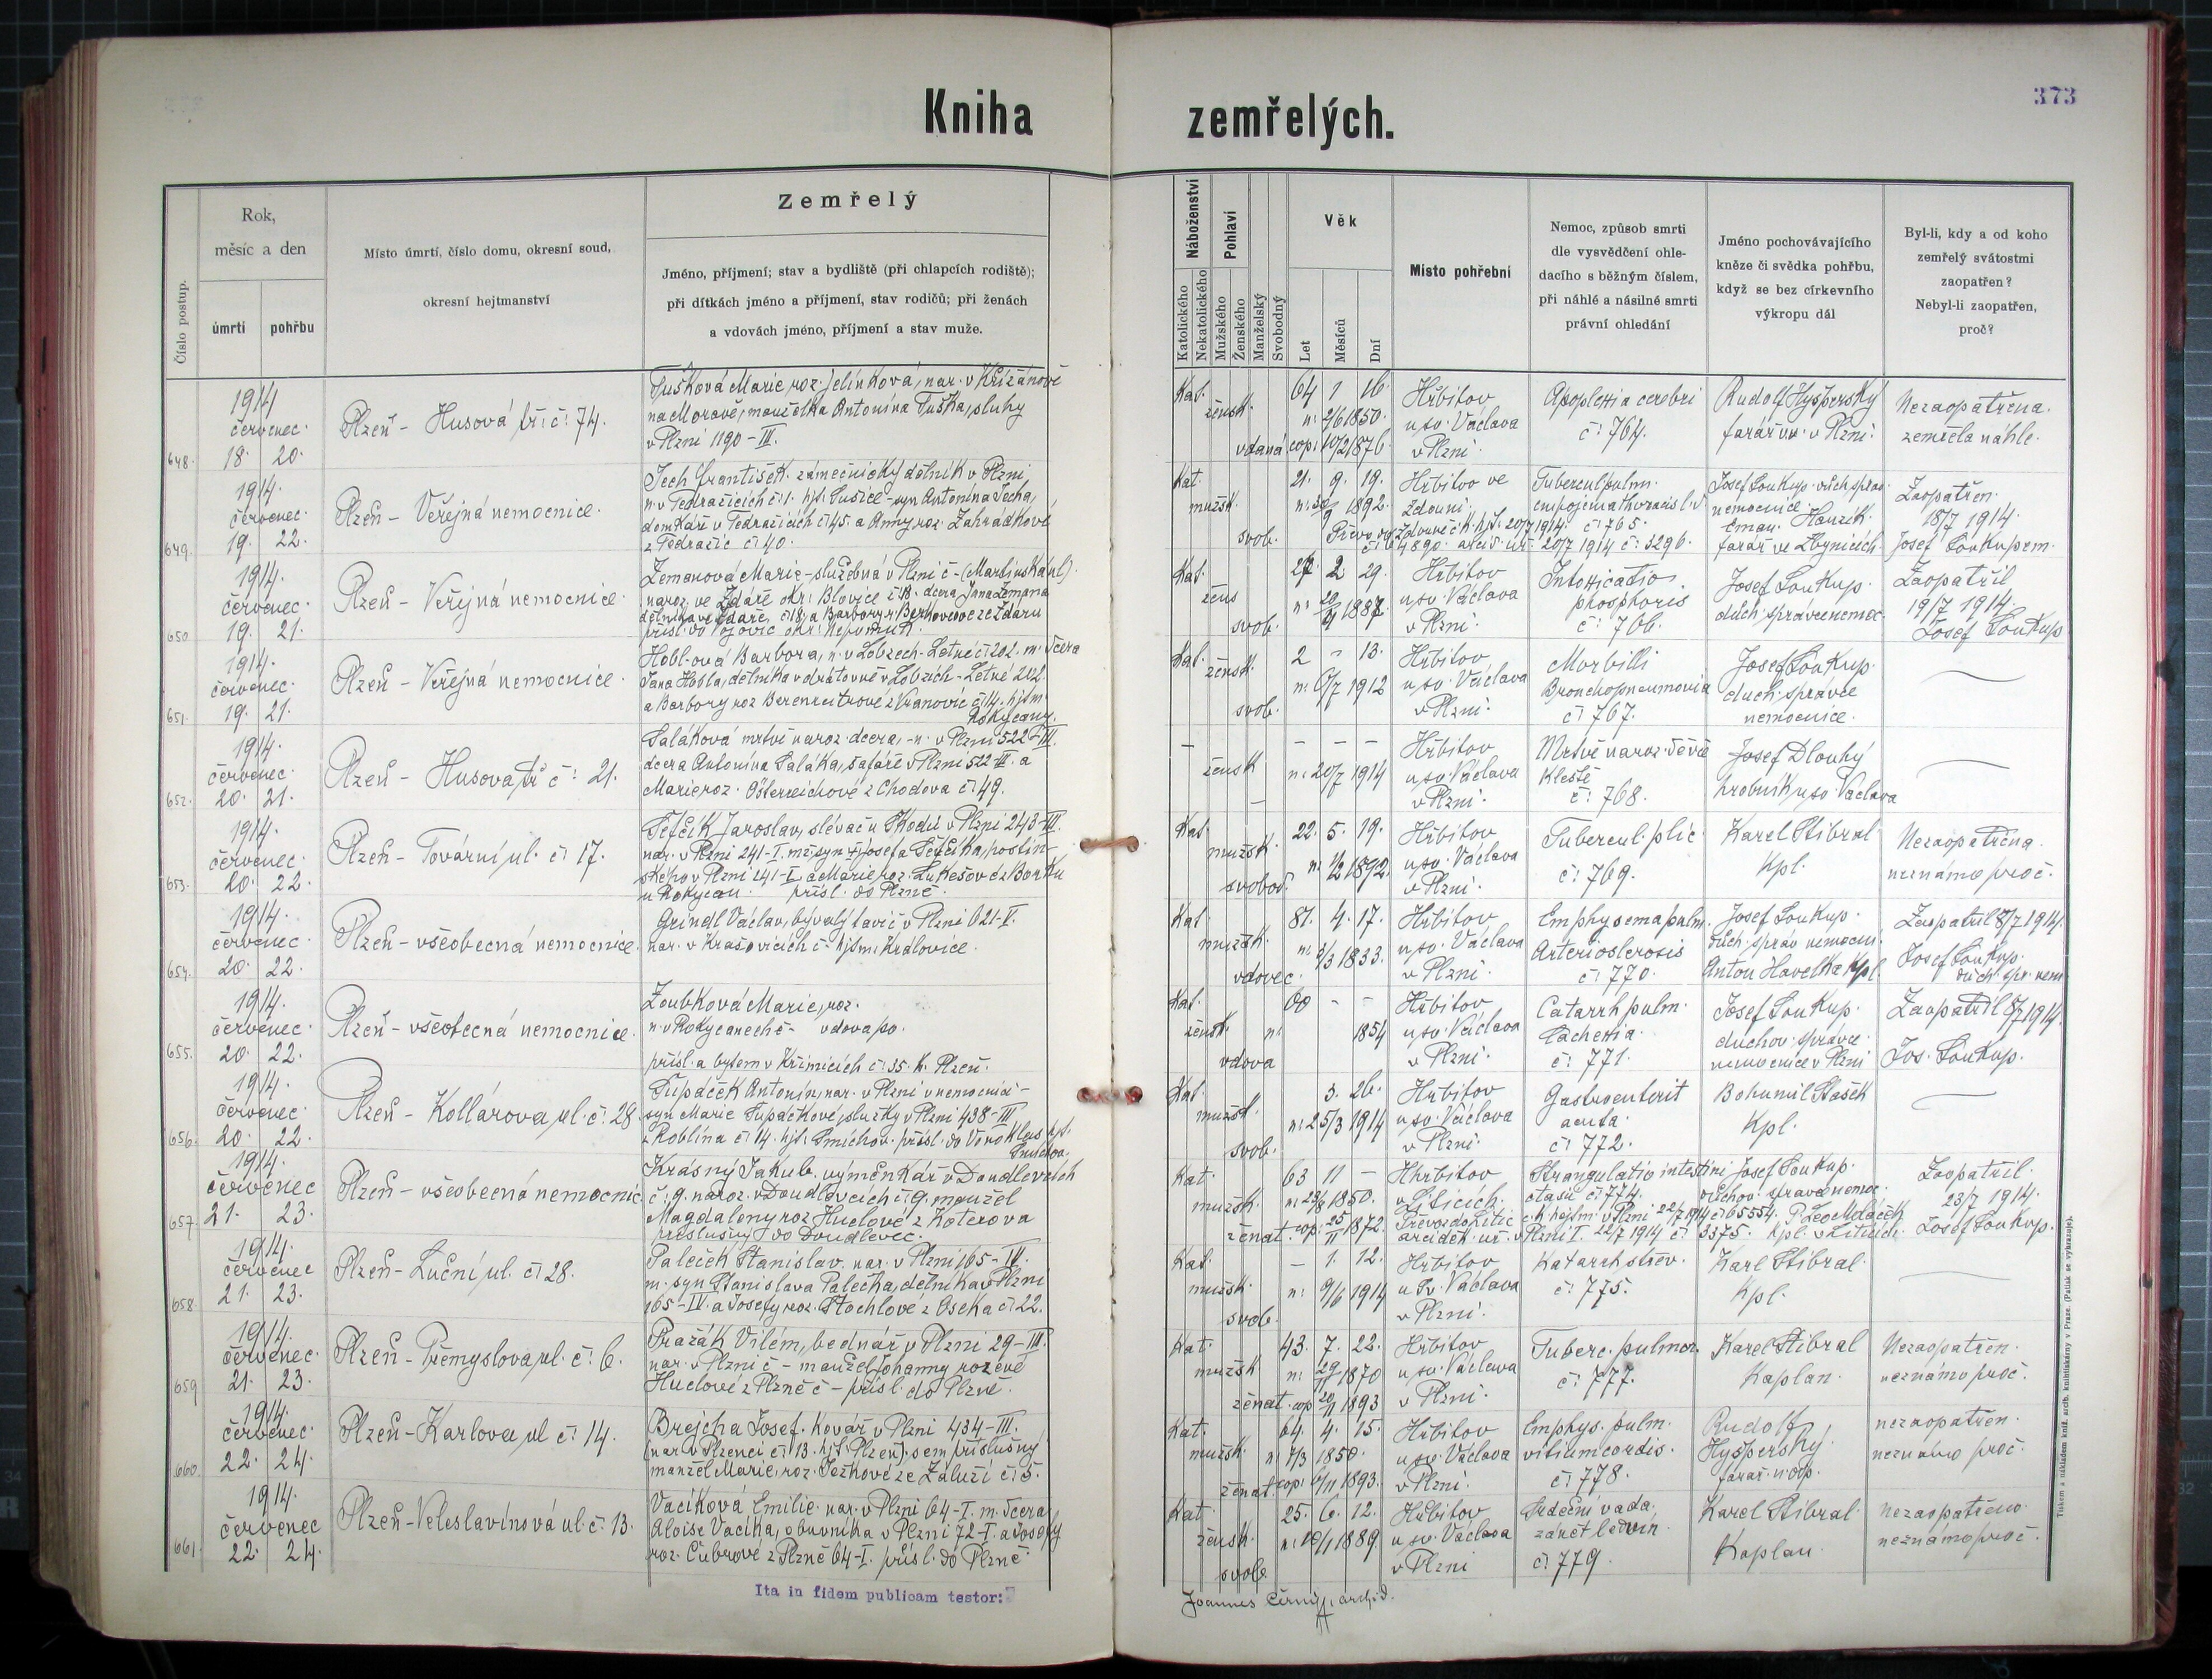 Kniha zemřelých.
373
Číslo postup.
Rok,
měsíc a den
úmrtí
pohřbu
Místo úmrtí, číslo domu, okresní soud,
okresní hejtmanství
Zemřelý
Jméno, příjmení; stav a bydliště (při chlapcích rodiště);
při dítkách jméno a příjmení, stav rodičů; při ženách
a vdovách jméno, příjmení a stav muže.
Náboženství
Katolického
Nekatolického
Pohlaví
Mužského
Ženského
Manželský
Svobodný
Věk
Let
Měsíců
Dní
Místo pohřební
Nemoc, způsob smrti
dle vysvědčení ohle-
dacího s běžným číslem,
při náhlé a násilné smrti
právní ohledání
Jméno pochovávajícího
kněze či svědka pohřbu,
když se bez církevního
výkropu dál
Byl-li, kdy a od koho
zemřelý svátostmi
zaopatřen?
Nebyl-li zaopatřen,
proč?
648.
1914
červenec.
18. 20.
Plzeň - Husová tř. č: 74.
Tušková Marie, roz. Jelínková, nar. v Křižánově
na Moravě, manželka Antonína Tuška, sluhy
v Plzni 1190 - III.
Kat.
žensk.
vdaná
64 1 16
n: 2/6 1850.
cop: 10/2 1876.
Hřbitov
u sv. Václava
v Plzni.
Apoplexia cerebri
č: 764.
Rudolf Hyšperský
farář v Plzni.
Nezaopatřena.
zemřela náhle.
649.
1914.
červenec.
19. 22.
Plzeň - Veřejná nemocnice.
Jech František. zámečnický dělník v Plzni
n. v Tedražicích č: 1. hjt. Sušice - syn Antonína Jecha,
domkáře v Tedražicích č: 45. a Anny roz. Zahrádkové
z Tedražic č: 40.
Kat.
mužsk.
svob.
21. 9. 19.
n: 30/9 1892.
Hřbitov ve
Zdouni.
Tubercul. pulm.
empyjema thoracis l. d.
č: 765.
20/7 1914 č: 3296.
Josef Soukup. duch. správ.
nemocnice
Eman. Hanzík.
farář ve Zbynicích.
Zaopatřen.
18/7 1914.
Josef Soukupem.
650
1914.
červenec.
19. 21.
Plzeň - Veřejná nemocnice.
Zemanová Marie - služebná v Plzni č - (Martinská ul).
naroz. ve Ždáře okr: Blovice č: 18. dcera Jana Zemana
dělníka ve Ždáře, č: 18, a Barbory
přísl. do Vojovic okr: Nepomuk.
Kat.
žens
svob.
27. 2. 29.
n: 20/4 1887.
Hřbitov
u sv. Václava
v Plzni.
Intoxicatio
phosphoris
č: 766.
Josef Soukup.
duch. správce nemoc.
Zaopatřil
19/7 1914.
Josef Soukup
651.
1914.
červenec.
19. 21.
Plzeň - Veřejná nemocnice.
Hobl-ová Barbora, n. v Lobzech - Letné č: 202. m. dcera
Jana Hobla, dělníka v drátovně v Lobzích - Letné 202.
a Barbory roz Berenreitrové z Vranovic č: 14. hjtm.
Rokycany.
Kat.
žensk.
svob.
2 - 13.
n: 6/7 1912
Hřbitov
u sv. Václava
v Plzni.
Morbilli
Bronchopneumonia
č: 767.
Josef Soukup.
duch. správce
nemocnice.
652.
1914.
červenec.
20. 21.
Plzeň - Husova tř č: 21.
Saláková mrtvě naroz. dcera, - n. v Plzni 522 - III.
dcera Antonína Saláka, šafáře v Plzni 522-III. a
Marie roz. Österreichové z Chodova č: 49.
žensk
n: 20/7 1914
Hřbitov
u sv. Václava
v Plzni.
Mrtvě naroz. děvče
Kleště
č: 768.
Josef Dlouhý
hrobník u sv. Václava
653.
1914.
červenec.
20. 22.
Plzeň - Tovární ul. č: 17.
Šefčík Jaroslav, slévač u Škodů v Plzni 243-III.
nar. v Plzni 241-I. mž. syn † Josefa Šefčíka, postřih-
v Plzni 141-I. a Marie roz. Lukešov é z Borku
u Rokycan. přísl. do Plzně.
Kat.
mužsk.
svobod.
22. 5. 19.
n: 1/2 1892.
Hřbitov
u sv. Václava
v Plzni.
Tubercul. plic.
č: 769.
Karel Stibral
Kpl.
Nezaopatřena.
neznámo proč.
654.
1914.
červenec
20. 22.
Plzeň - všeobecná nemocnice.
Grindl Václav, bývalý tavič v Plzni 621-V.
nar. v Krašovicích č. hjtm. Kralovice.
Kat
mužsk.
vdovec.
81. 4. 17.
n: 3/3 1833.
Hřbitov
u sv. Václava
v Plzni.
Emphysema pulm.
Arteriosclerosis
č: 770.
Josef Soukup.
duch. správ nemocni.
Anton Havelka Kpl.
Zaopatřil 8/7 1914.
Josef Soukup.
duch. spr. nem
655.
1914.
červenec.
20. 22.
Plzeň - všeobecná nemocnice.
Zoubková Marie, roz.
n. v Rokycanech č - vdova po.
přísl. a bytem v Křimicích č: 35. h. Plzeň.
Kat.
žensk.
vdova
60 - -
n: 1854
Hřbitov
u sv. Václava
v Plzni.
Catarrh pulm.
Cachexia.
č: 771.
Josef Soukup.
duchov. správce
nemocnice v Plzni
Zaopatřil 8/7 1914.
Jos. Soukup.
656.
1914.
červenec.
20. 22.
Plzeň - Kollárova ul. č: 28
Ťupáček Antonín, nar. v Plzni v nemocnici -
syn Marie Ťupáčkové, služky v Plzni 438-III
z Roblína č: 14. hjt. Smíchov. přísl. do Vono Klas hjt.
Smíchov.
Kat.
mužsk.
svob.
3. 26.
n: 25/3 1914
Hřbitov
u sv. Václava
v Plzni.
Gastroenterit
acuta.
č: 772.
Bohumil Stašek
Kpl.
657.
1914.
červenec
21. 23.
Plzeň - všeobecná nemocnic.
Krásný Jakub. výměnkář v Doudlevcích
č: 9. naroz. v Doudlevcích č: 9. manžel
Magdaleny roz Huclové z Koterova
příslušný do Doudlevec.
Kat.
mužsk.
ženat.
63 11 -
n: 25/8 1850.
cop: 25/11 1872
Hhřbitov
v Liticích.
Strangulatio intestini
č: 774.
Převoz do Litic c. k. hejtm. v Plzni 22/7 1914 č: 65554.
arciděk. úř. v Plzni I. 22/7 1914 č: 3375.
Josef Soukup.
duchov. správce nemoc.
P. Leo Mdáček
Kpl. v Liticích.
Zaopatřil.
23/7 1914.
Josef Soukup.
658.
1914.
červenec
21. 23.
Plzeň - Luční ul. č: 28.
Paleček Stanislav nar. v Plzni 165 - IV.
m. syn Stanislava Palečka, dělníka v Plzni
165 - IV. a Josefy roz. Stochlové z Oseka č: 22.
Kat.
mužsk.
svob.
- 1. 12.
n: 9/6 1914
Hřbitov
u Sv. Václava
v Plzni.
Katarh střev.
č: 775.
Karl Stibral.
Kpl.
659
1914.
červenec.
21. 23.
Plzeň - Přemyslova ul. č: 6.
Pražák Vilém, bednář v Plzni 29 - III.
nar. v Plzni č - manžel Johanny rozené
Huclové z Plzně č - přísl. do Plzně.
Kat.
mužsk
ženat.
43. 7. 22.
n: 29/11 1870
cop 20/11 1893
Hřbitov
u sv. Václava
v Plzni.
Tuberc. pulmon.
č: 777.
Karel Stibral
Kaplan.
Nezaopatřen.
neznámo proč.
660.
1914.
červenec.
22. 24.
Plzeň - Karlova ul č: 14.
Brejcha Josef. Kovář v Plzni 434 - III.
(nar. v Plzenci č: 13. hjt. Plzeň). sem příslušný
manžel Marie, roz. Ježkové ze Záluží č: 5.
Kat.
mužsk.
ženat.
64. 4. 15.
n: 7/3 1850.
cop: 6/11 1893.
Hřbitov
u sv. Václava
v Plzni.
Emphys. pulm.
vitium cordis.
č: 778.
Rudolf
Hyšperský
farář. n. odp.
nezaopatřen.
neznámo proč.
661.
1914.
červenec
22. 24.
Plzeň - Veleslavínová ul. č: 13.
Vacíková Emilie. nar. v Plzni 64 - I. m. dcera
Aloise Vacíka, obuvníka v Plzni 72 - I. a Josefy
roz. Čubrové z Plzně 64 - I. přísl. do Plzně.
Kat.
žensk.
svob
25. 6. 12.
n: 10/11 1889.
Hřbitov
u sv. Václava
v Plzni
Srdeční vada.
zánět ledvin.
č: 779.
Karel Stibral.
Kaplan.
nezaopatřena.
neznámo proč.
Ita in fidem publicam testor:
Joannes Černý, archid.